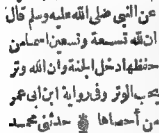 عن النبي صلى الله عليه وسلم قال
ان لله تسعة وتسعين اسما من
حفظها دخل الجنة وان الله وتر
يحب الوتر وفي رواية ابن ابى عمر
من أحصاها حدثنى محمد